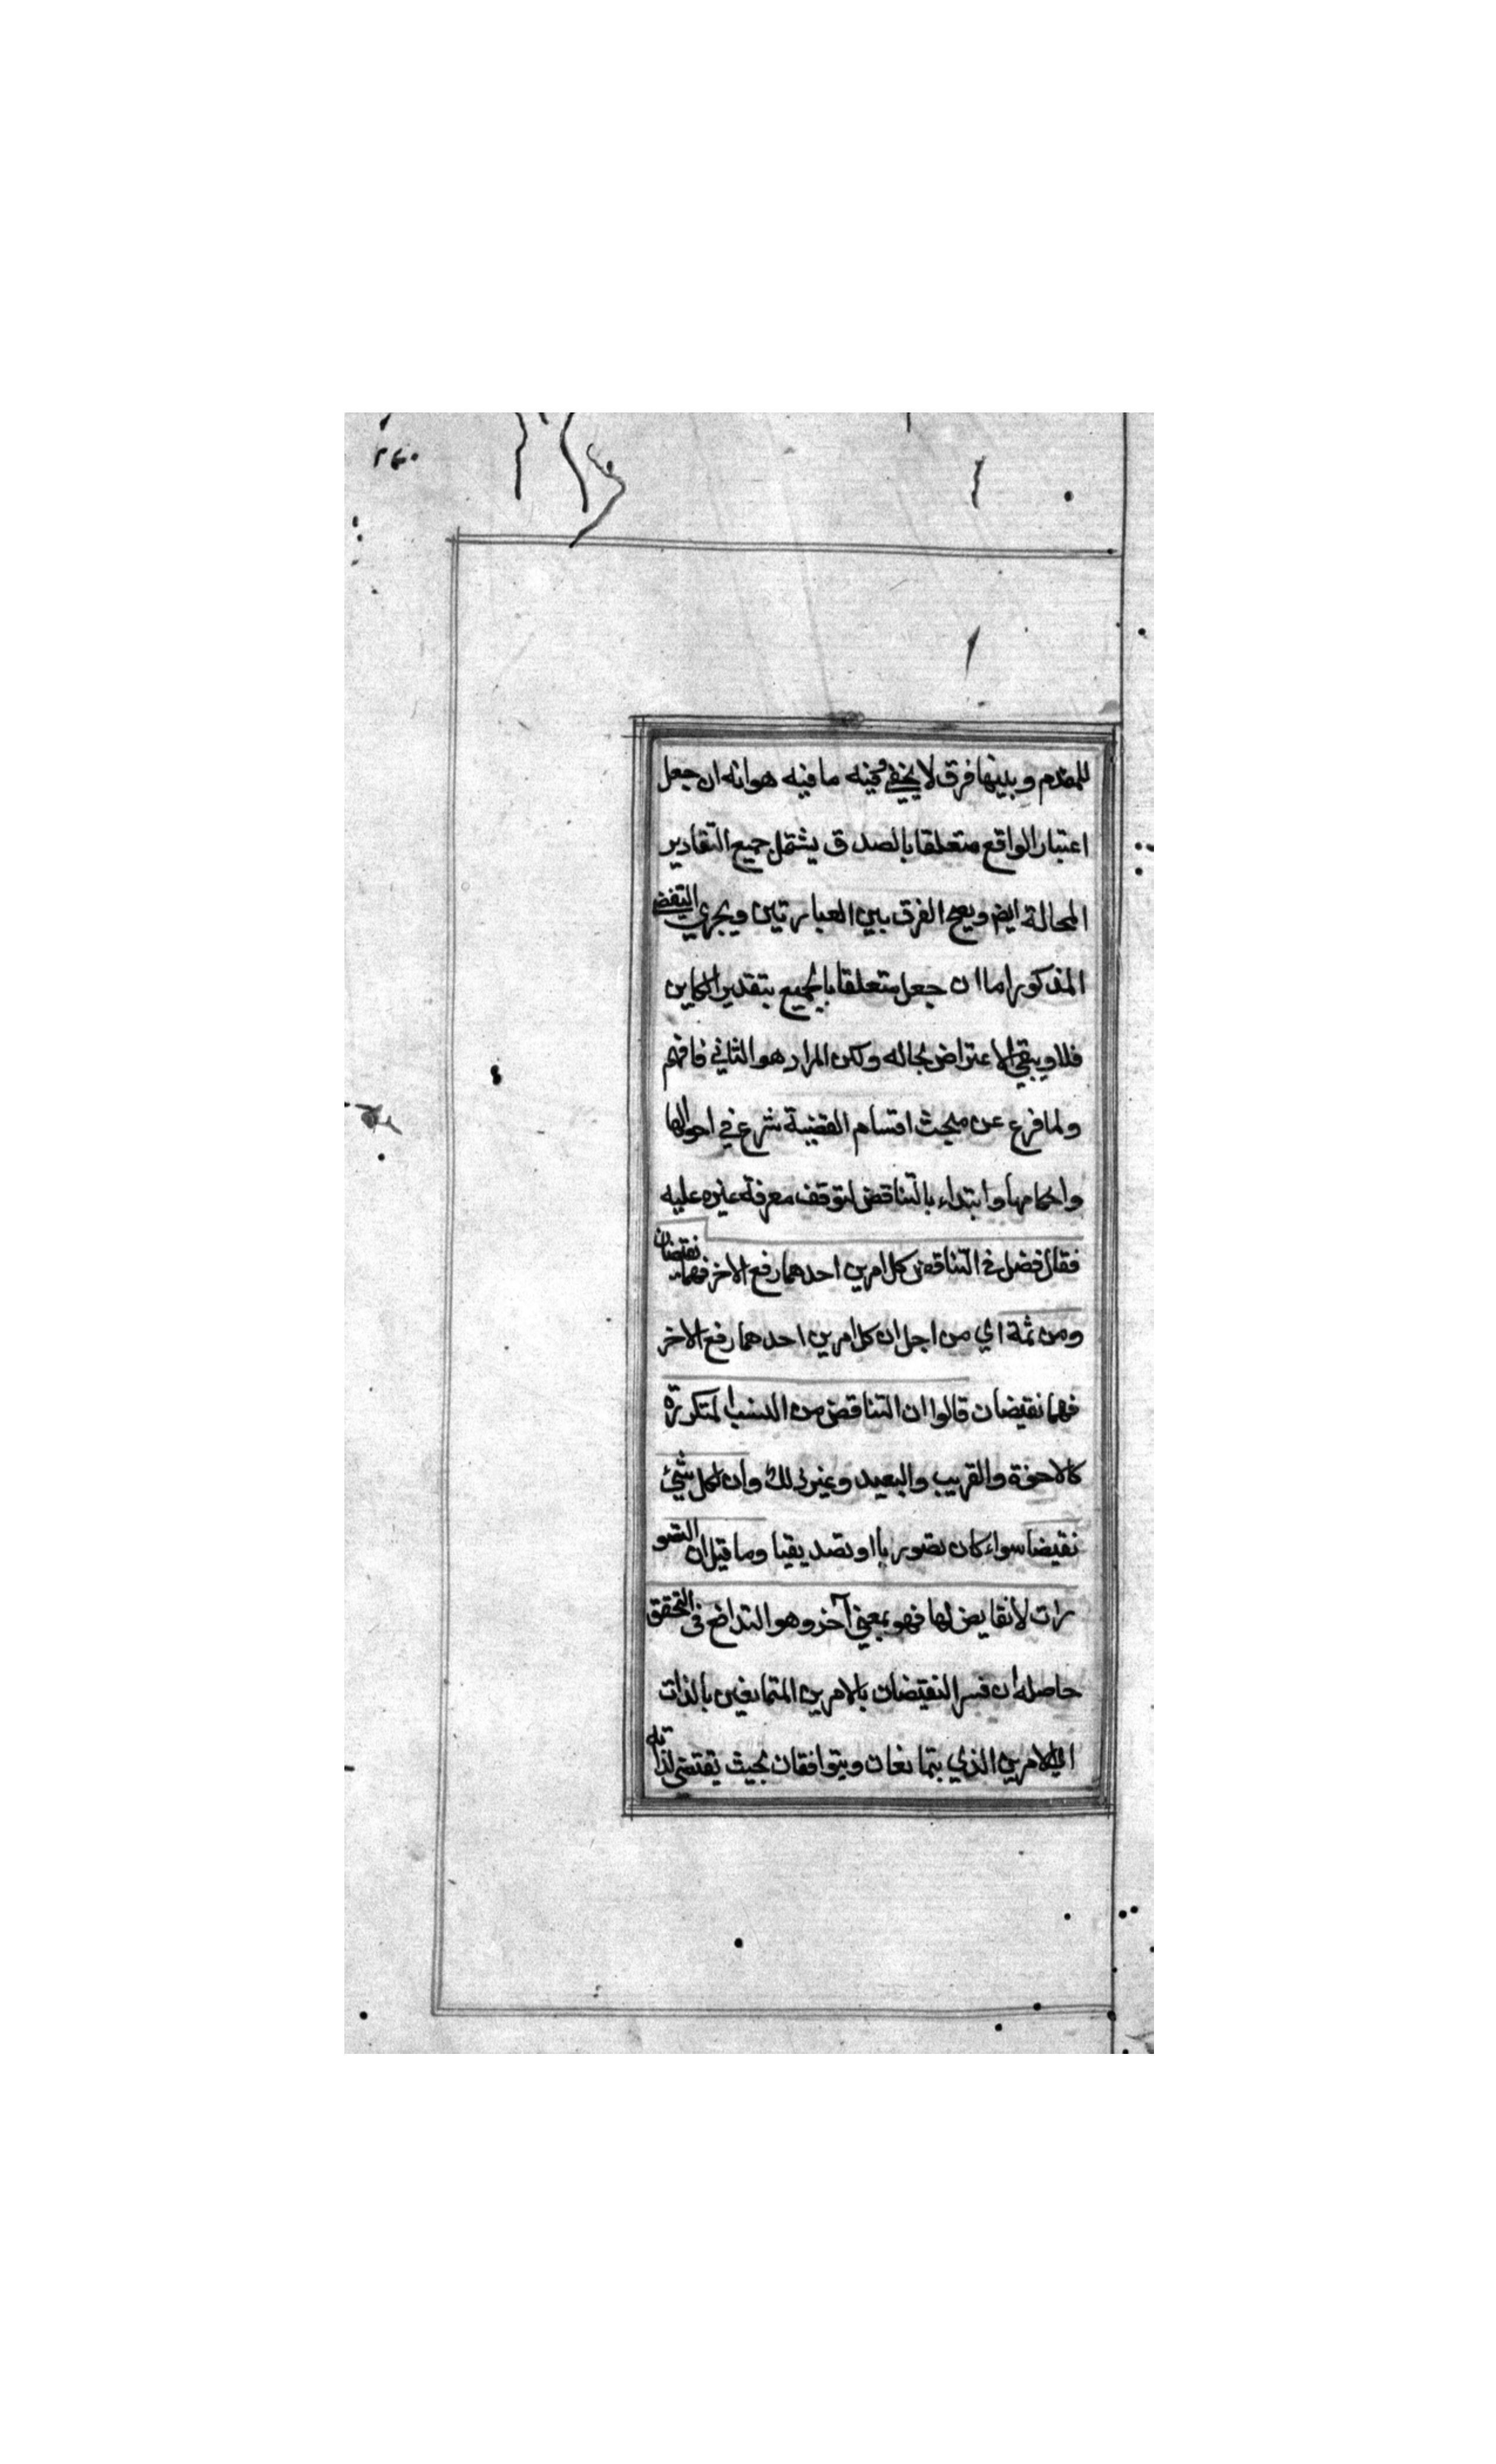 ٢٤٠
للمقدم وبينها فرق لا يخفى فيه ما فيه هو انه ان جعل
اعتبار الواقع متعلقا بالصدق يشتمل جميع التقادير
المحالة ايض ويصح الفرق بين العبارتين ويجري النقض
المذكور اما ان جعل متعلقا بالجميع بتقدير الكاين
فلا ويبقى الاعتراض بحاله ولكن المراد هو الثاني فافهم
ولما فرغ عن مبحث اقسام القضية شرع في احوالها
واحكامها وابتداء بالتناقض لتوقف معرفة غيره عليه
فقال فصل في التناقض كل امرين احدهما رفع الاخر فهما نقيضان
ومن ثمة اي من اجل ان كل امرين احدهما رفع الاخر
فهما نقيضان قالوا ان التناقض من النسب المتكررة
كالاخوة والقريب والبعيد وغير ذلك وان لكل شيئ
نقيضا سواء كان تصوريا او تصديقيا وما قيل ان التصو
رات لا نقايض لها فهو بمعنى آخر وهو التدافع في التحقق
حاصله ان فسر النقيضان بالامرين المتمانعين بالذات
اي الامرين الذي يتمانعان ويتوافقان بحيث يقتضي لذاته